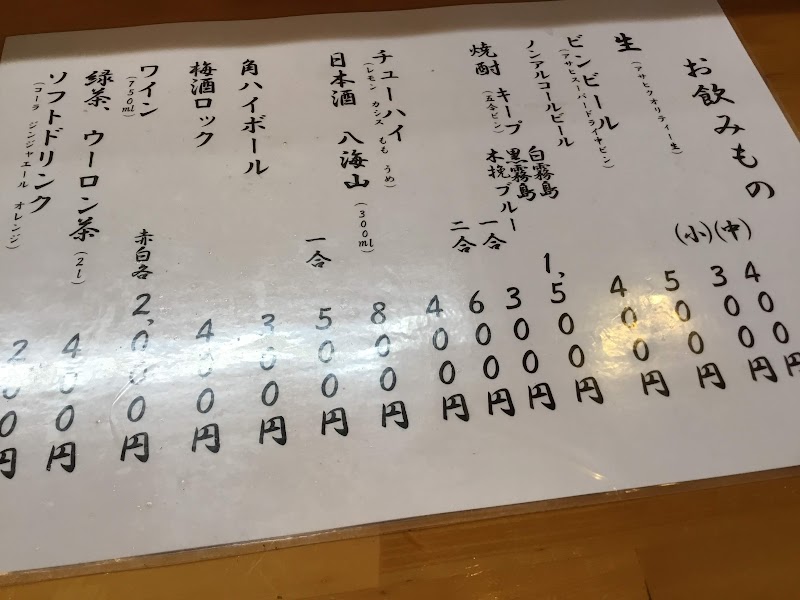 お飲みもの
生 (中) 400円
(アサヒクオリティー生) (小) 300円
ビンビール 500円
(アサヒスーパードライ中ビン)
ノンアルコールビール 400円
焼酎 キープ 白霧島 1,500円
(五合ビン) 黒霧島
木挽ブルー
一合 300円
二合 600円
チューハイ 400円
(レモン カシス もも うめ)
日本酒 八海山 (300ml) 800円
一合 500円
角ハイボール 300円
梅酒ロック 400円
ワイン 赤白各 2,000円
(750ml)
緑茶、ウーロン茶 (2l) 400円
ソフトドリンク 200円
(コーラ ジンジャエール オレンジ)